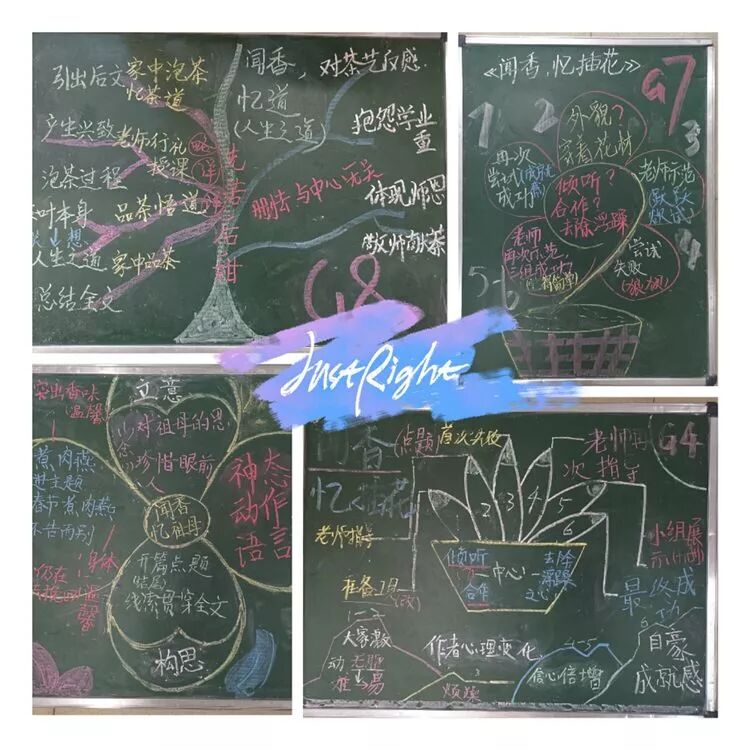 引出后文
家中泡茶
忆茶道
产生兴致
老师行礼
授课
泡茶过程
叶本身
品茶悟道
想
人生之道
家中品茶
总结全文
先苦后甜
闻香,
忆道
(人生之道)
对茶艺反感
抱怨学业
重
删去与中心无关
体现师恩
敬师献茶
G8
《闻香,忆插花》
G7
1
2
3
4
5-6
外貌?
穿着花材
再次
尝试(成就感)
成功
倾听?
合作?
去除浮躁
老师示范
(跃跃
欲试)
老师
再次示范
三组成功
尝试
失败
(狼狈)
JustRight
突出香味
温馨
立意
对祖母的思
念珍惜眼前
人
煮肉燕
进主题
春节煮肉燕
不告而别
闻香
忆祖母
神态
动作
语言
开篇点题
线索贯穿全文
身体
仍在
馨
构思
闻香
忆插花
点题
首次失败
老师再
次指导
G4
1
2
3
4
5
6
老师指导
倾听
合作
中心
去除
浮躁
之心
小组展
示
准备工具
(改)
最终成
功
1-2
大家激
动
难
易
作者心理变化
烦躁
4-5
信心倍增
6
自豪
成就感